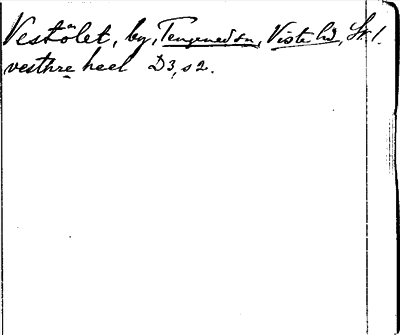 Vestölet, by, Tengeneds sn, Viste hd, Sk. l.
vesthre heel D3, s 2.